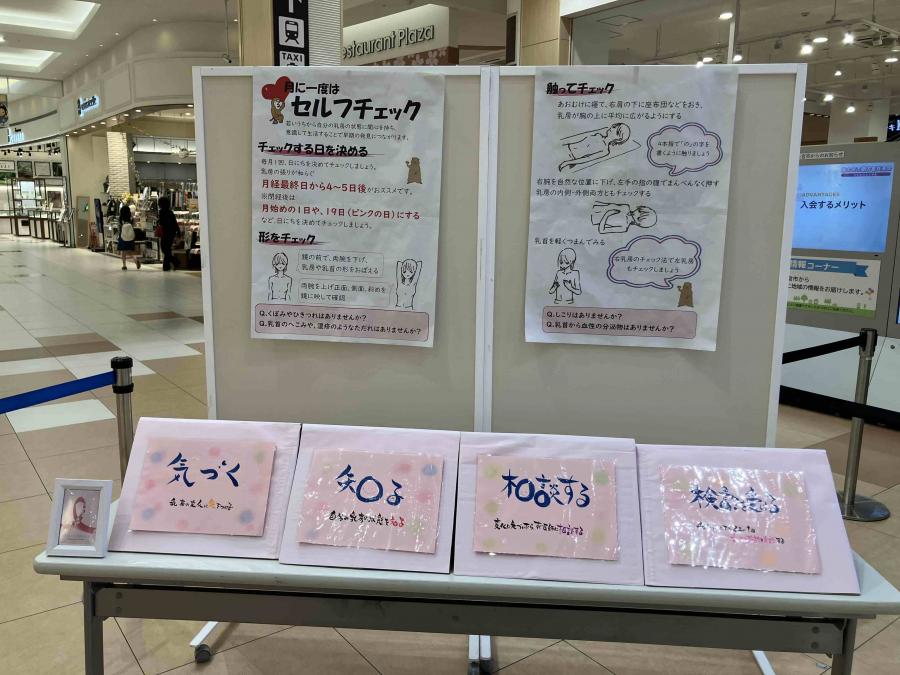 TAXI
Restaurant Plaza
月に一度は
セルフチェック
若いうちから自分の乳房の状態に関心を持ち、
意識して生活することで早期の発見につながります。
チェックする日を決める
毎月1回、日にちを決めてチェックしましょう。
乳房の張りが和らぐ
月経最終日から4~5日後がおススメです。
※閉経後は
月始めの1日や、19日(ピンクの日)にする
など、日にちを決めてチェックしましょう。
形をチェック
鏡の前で、両腕を下げ、
乳房や乳首の形をおぼえる
両腕を上げ正面、側面、斜めを
鏡に映して確認
Q.くぼみやひきつれはありませんか?
Q.乳首のへこみや、湿疹のようなただれはありませんか?
触ってチェック
あおむけに寝て、右肩の下に座布団などをおき、
乳房が胸の上に平均に広がるようにする
4本指で「の」の字を
書くように触りましょう
右腕を自然な位置に下げ、左手の指の腹でまんべんなく押す
乳房の内側・外側両方ともチェックする
乳首を軽くつまんでみる
右乳房のチェック法で左乳房
もチェックしましょう
Q.しこりはありませんか?
Q.乳首から血性の分泌物はありませんか?
市からのお知らせ
ADVANTAGES
入会するメリット
情報コーナー
市から
に地域の情報をお届けします。
気づく
知る
自分の乳房の状態を知る
相談する
検診を受ける